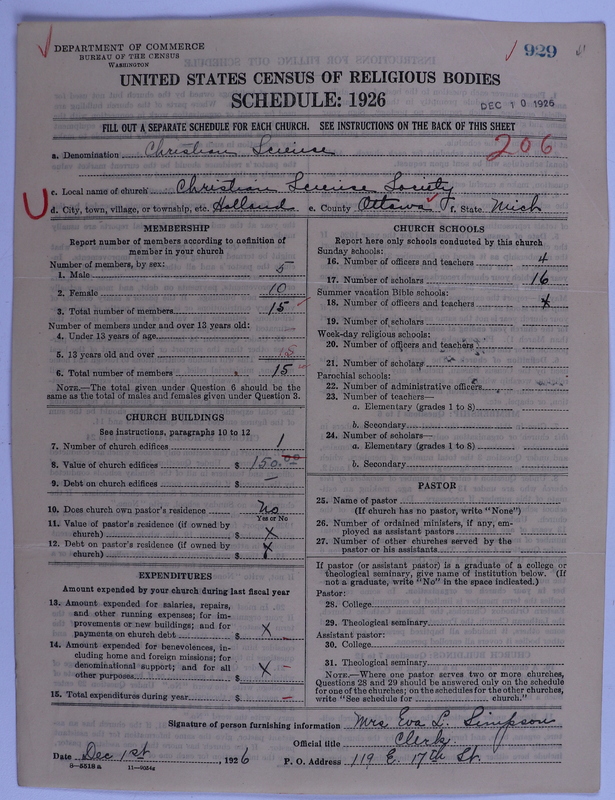 DEPARTMENT OF COMMERCE
BUREAU OF THE CENSUS
WASHINGTON
929
UNITED STATES CENSUS OF RELIGIOUS BODIES
SCHEDULE: 1926
DEC 10 1926
FILL OUT A SEPARATE SCHEDULE FOR EACH CHURCH. SEE INSTRUCTIONS ON THE BACK OF THIS SHEET
206
a. Denomination Christian Science
c. Local name of church Christian Science Society
d. City, town, village, or township, etc. Holland e. County Ottawa f. State Mich
MEMBERSHIP
Report number of members according to definition of
member in your church
Number of members, by sex:
1. Male 5
2. Female 10
3. Total number of members 15
Number of members under and over 13 years old:
4. Under 13 years of age
5. 13 years old and over 15
6. Total number of members 15
NOTE.—The total given under Question 6 should be
same as the total of males and females given under Question 3.
CHURCH BUILDINGS
See instructions, paragraphs 10 to 12
7. Number of church edifices 1
8. Value of church edifices $ 150.00
9. Debt on church edifices $ —
10. Does church own pastor's residence No
Yes or No
11. Value of pastor's residence (if owned by
church) $ X
12. Debt on pastor's residence (if owned by
church) $ X
EXPENDITURES
Amount expended by your church during last fiscal year
13. Amount expended for salaries, repairs,
and other running expenses; for im-
provements or new buildings; and for
payments on church debt $ X
14. Amount expended for benevolences, in-
cluding home and foreign missions; for
denominational support; and for all
other purposes $ X —
15. Total expenditures during year $ —
CHURCH SCHOOLS
Report here only schools conducted by this church
Sunday schools:
16. Number of officers and teachers 4
17. Number of scholars 16
Summer vacation Bible schools:
18. Number of officers and teachers X
19. Number of scholars
Week-day religious schools:
20. Number of officers and teachers
21. Number of scholars
Parochial schools:
22. Number of administrative officers
23. Number of teachers—
a. Elementary (grades 1 to 8)
b. Secondary
24. Number of scholars—
a. Elementary (grades 1 to 8)
b. Secondary
PASTOR
25. Name of pastor
(If church has no pastor, write "None")
26. Number of ordained ministers, if any, em-
ployed as assistant pastors
27. Number of other churches served by the
pastor or his assistants
If pastor (or assistant pastor) is a graduate of a college or
theological seminary, give name of institution below. (If
not a graduate, write "No" in the space indicated.)
Pastor:
28. College
29. Theological seminary
Assistant pastor:
30. College
31. Theological seminary
NOTE.—Where one pastor serves two or more churches,
Questions 28 and 29 should be answered only on the schedule
for one of the churches; on the schedules for the other churches,
write "See schedule for church."
Signature of person furnishing information Mrs Eva L. Simpson
Official title Clerk
Date Dec 1st, 1926 P. O. Address 119 E. 17th St.
8—5518 a